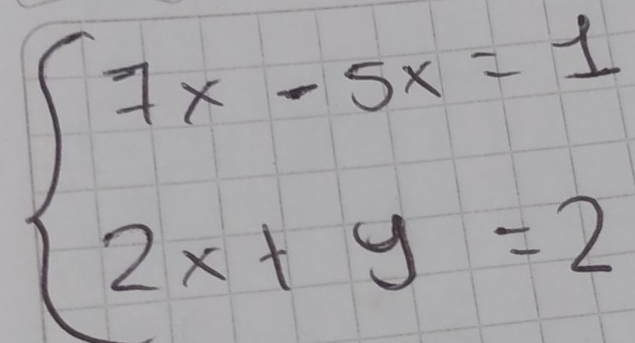 7x - 5x = 1
2x + y = 2